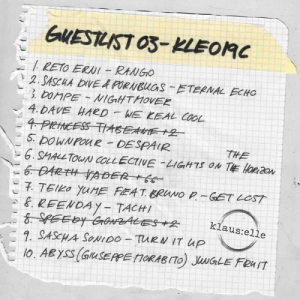 GUESTLIST 03 - KLE019C
1. RETO ERNI - RANGO
2. SASCHA DIVE & PORNBUGS - ETERNAL ECHO
3. DOMPE - NIGHTMOVER
4. DAVE HARD - WE REAL COOL
4. PRINCESS TIABEANIE +2
5. DOWNPOUR - DESPAIR
6. SMALLTOWN COLLECTIVE - LIGHTS ON THE HORIZON
6. DARTH VADER + 66
7. TEIKO YUME FEAT. BRUNO P. - GET LOST
8. REENDAY - TACHI
8. SPEEDY GONZALES +2
klaus:elle
9. SASCHA SONIDO - TURN IT UP
10. ABYSS (GIUSEPPE MORABITO) JUNGLE FRUIT